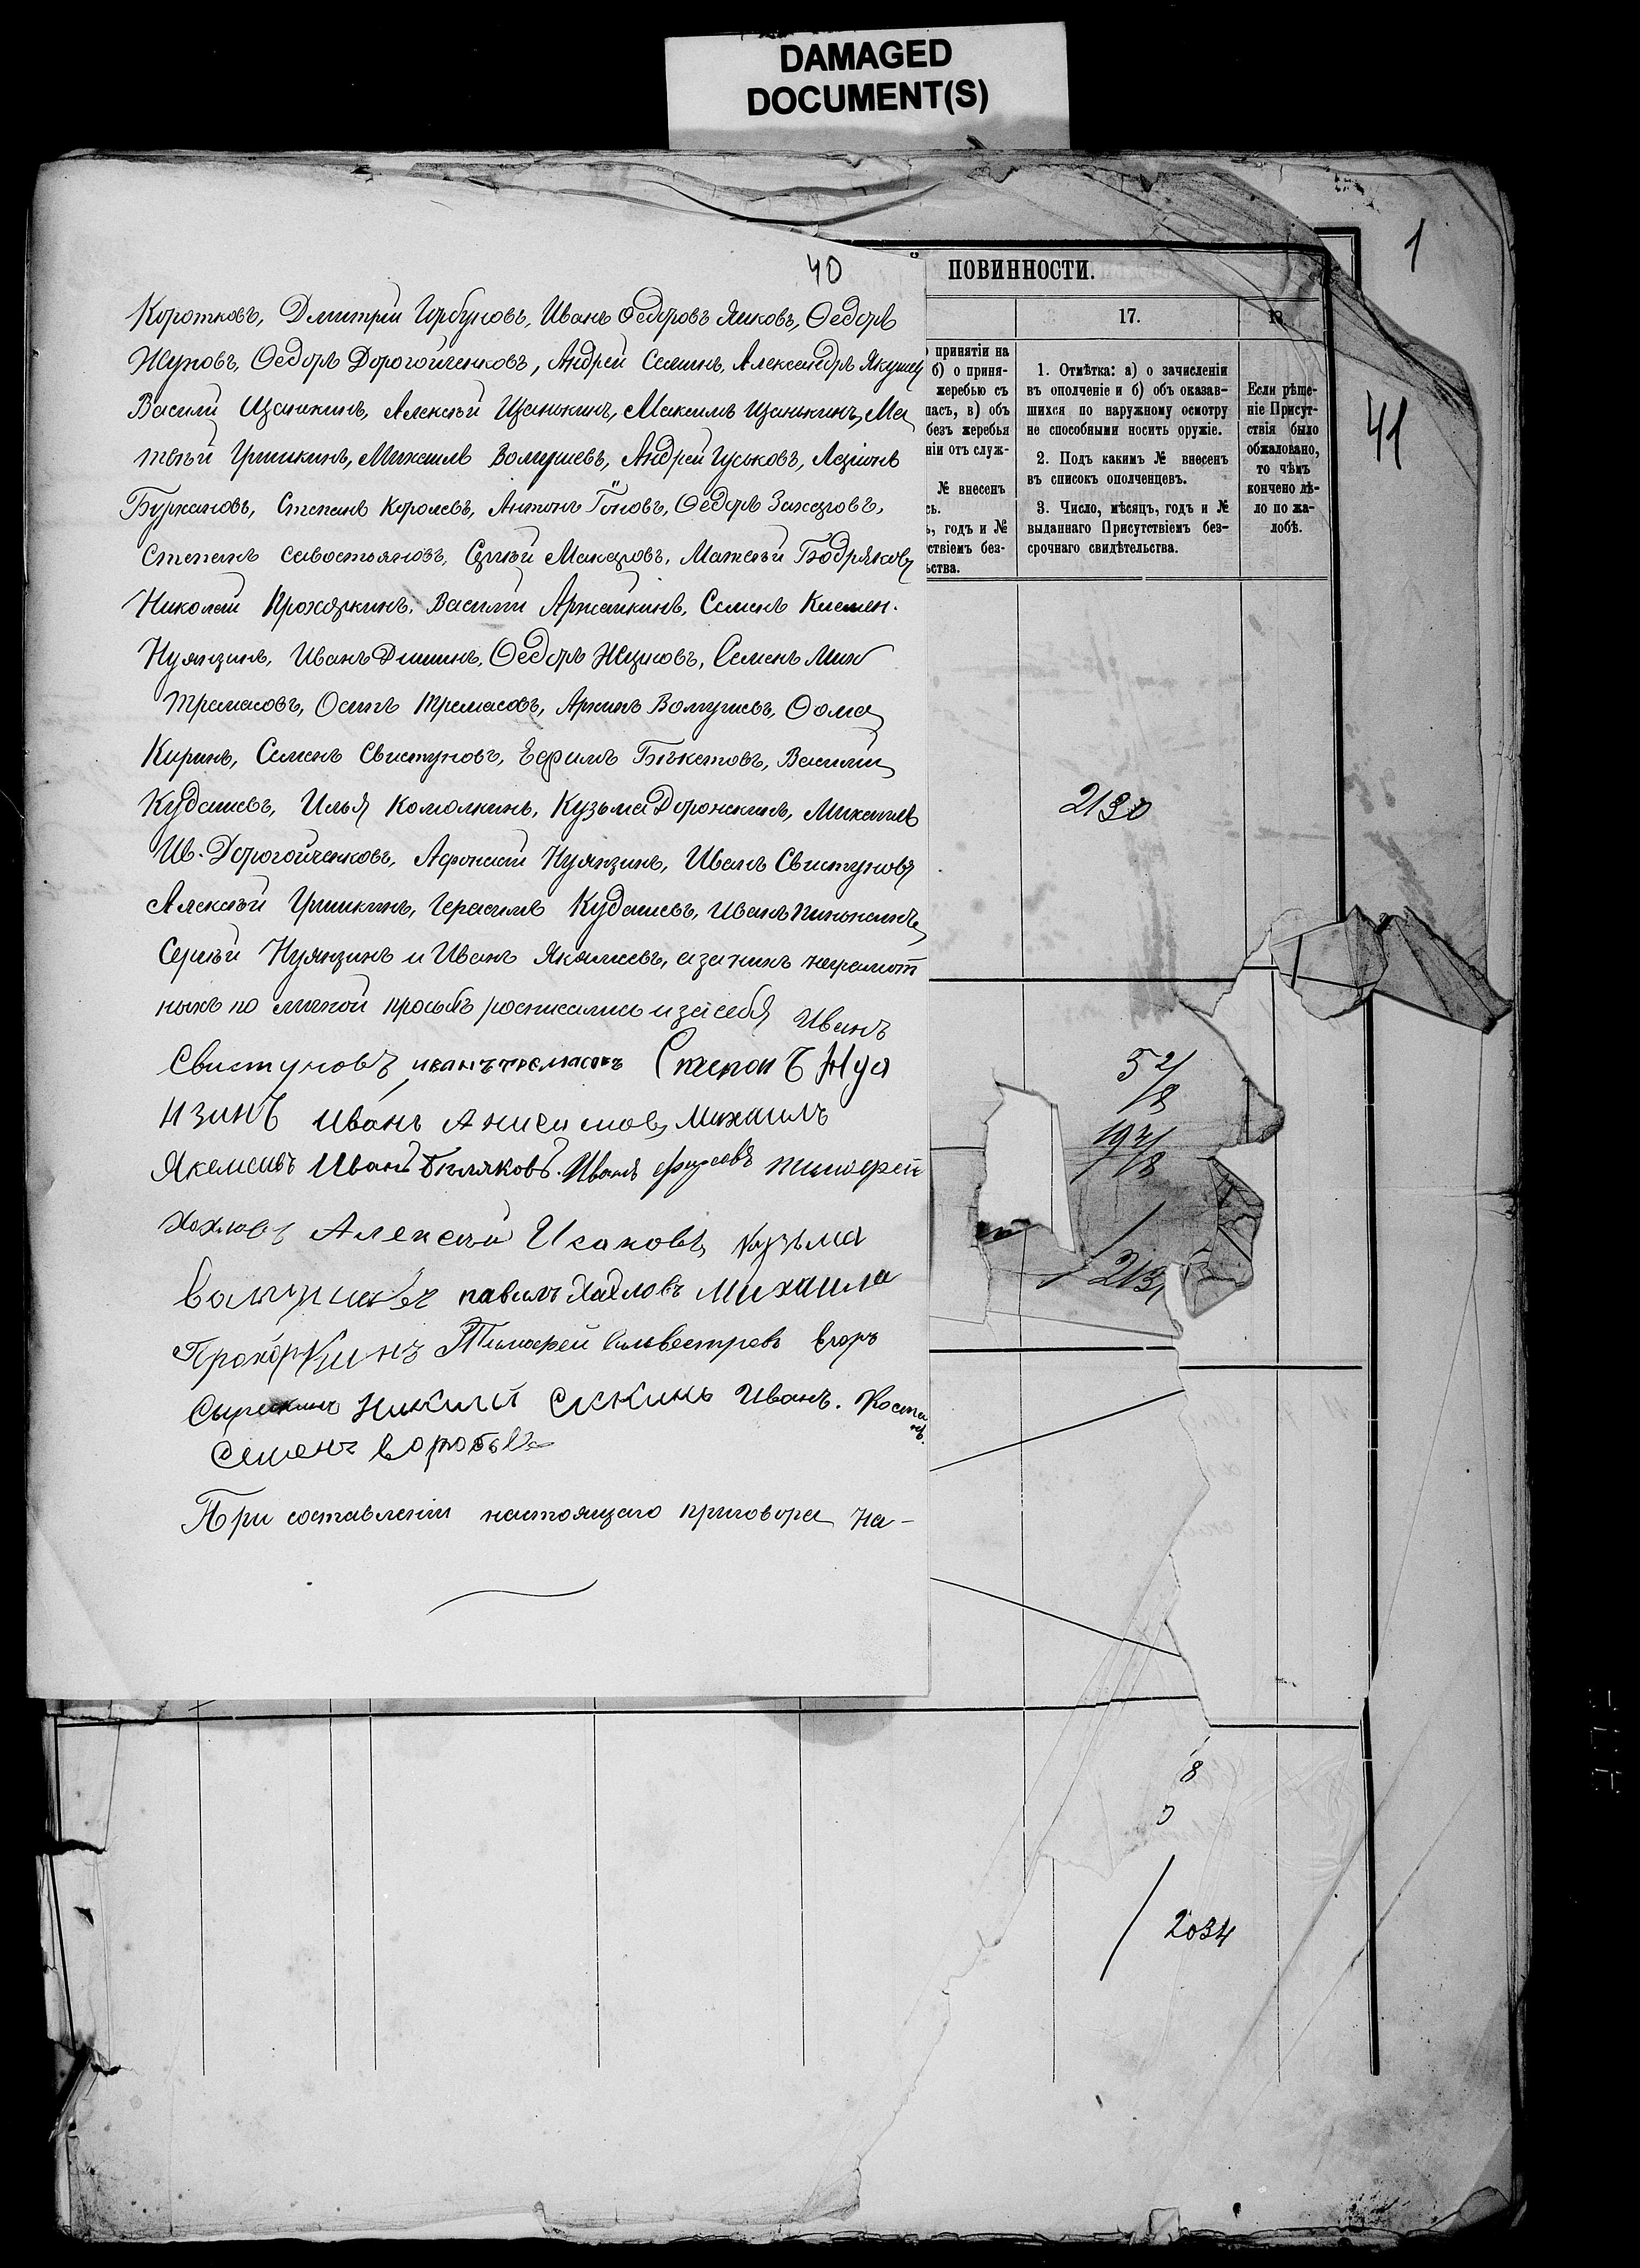 DAMAGED
DOCUMENT(S)
1
40
41
Коротковъ, Дмитрій Горбуновъ, Иванъ Федоровъ Яшковъ, Ѳедоръ
Жуновъ, Ѳедоръ Дорогойченковъ, Андрей Семинъ, Александръ Якушев
Василій Цзанкинъ, Алексѣй Цзанькинъ, Максимъ Цзанькинъ, Ма
твѣй Гришкинъ, Михаилъ Волгушевъ, Андрей Гуськовъ,
Буржановъ, Степанъ Королевъ, Антонъ Ѳедоръ Захаровъ,
Степанъ Севостьяновъ, Сергѣй Макаровъ, Матвѣй Бодряковъ
Николай Прохоркинъ, Василій Аржайкинъ, Семенъ
Нуянзинъ, Иванъ Дишинъ, Ѳедоръ Семенъ Мих
Тремасовъ, Осипъ Тремасовъ, Волгушевъ, Ѳома
Киринъ, Семенъ Свистуновъ, Ефимъ Бѣкетовъ, Василій
Кудашевъ, Илья Комолкинъ, Кузьма Доронькинъ, Михаилъ
Ив. Дорогойченковъ, Афонасій Нуянзинъ, Иванъ Свистуновъ
Алексѣй Гришкинъ, Герасимъ Кудашевъ, Иванъ
Сергѣй Нуянзинъ и Иванъ Якамсевъ, а за нихъ неграмот
ныхъ по личной просьбѣ росписались и за себя Иванъ
Свистуновъ иванъ тремасовъ Степонъ Нуя
нзинъ Иванъ Анисимовъ Михаилъ
Якемсивъ Иванъ Бѣляковъ. Иванъ Фирсовъ Тимофей
Хохловъ Алексѣй Исаковъ Кузьма
Волгушевъ павилъ Хохловъ Михаила
Прохоркинъ Тимофей Сильвестровъ Егоръ
Сыркинъ Иванъ. Костинъ
Семенъ воробьевъ
При составленіи настоящаго приговора на-
ПОВИННОСТИ.
17.
принятіи на
б) о приня-
жеребью съ
пасъ, в) объ
безъ жеребья
ніи отъ служ-
№ внесенъ
сь.
ь, годъ и №
ствіемъ без-
ьства.
1. Отмѣтка: а) о зачисленіи
въ ополченіе и б) объ оказав-
шихся по наружному осмотру
не способными носить оружіе.
2. Подъ какимъ № внесенъ
въ списокъ ополченцевъ.
3. Число, мѣсяцъ, годъ и №
выданнаго Присутствіемъ без-
срочнаго свидѣтельства.
Если рѣше-
ніе Присут-
ствія было
обжаловано,
то чѣмъ
кончено дѣ-
ло по жа-
лобѣ.
2130
213
8
2034